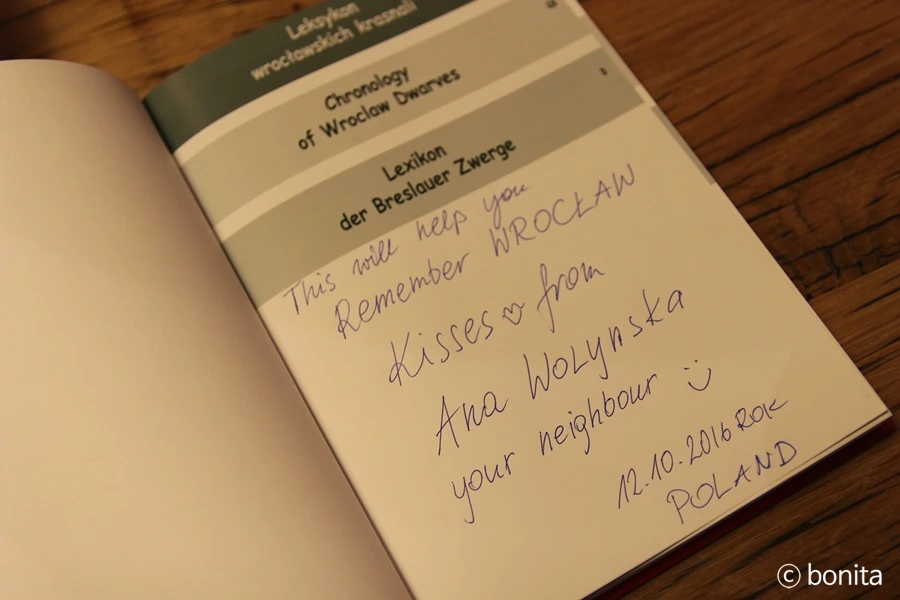 Leksykon
wrocławskich krasnali
Chronology
of Wroclaw Dwarves
Lexikon
der Breslauer Zwerge
This will help you
Remember WROCŁAW
Kisses ♡ from
Ana Wołynska
your neighbour :)
12.10.2016 ROK
POLAND
© bonita